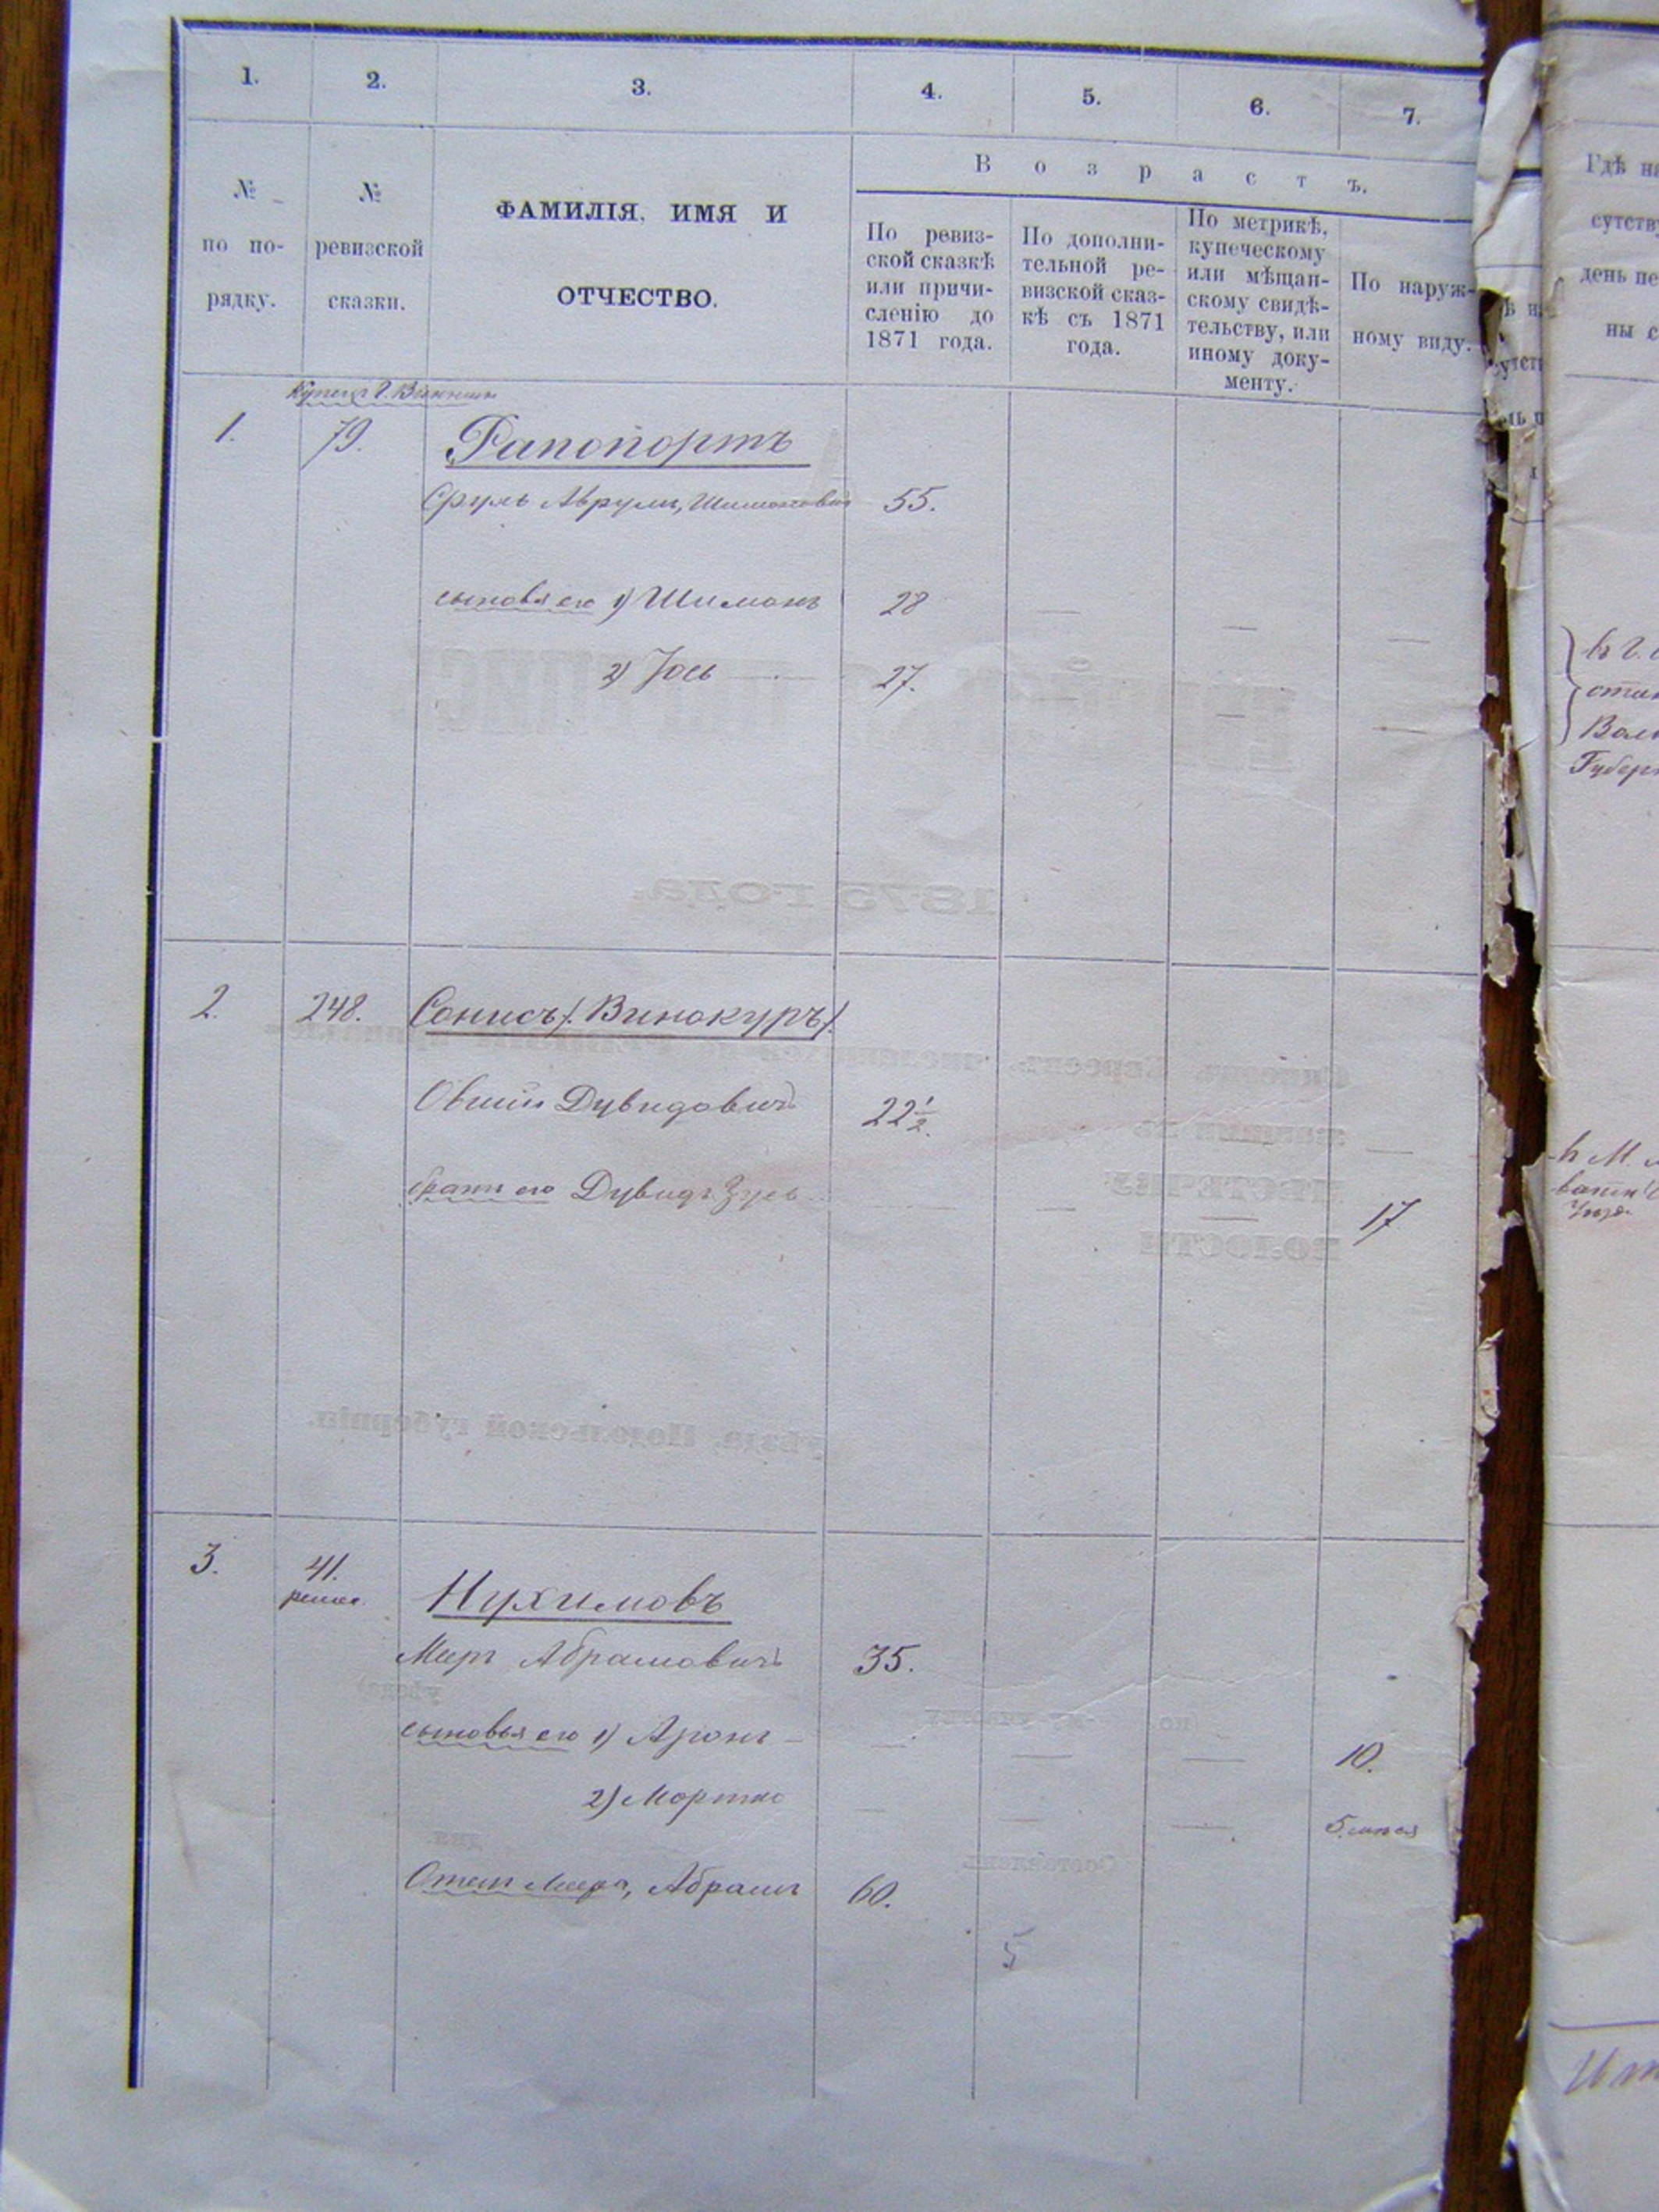 1. 2. 3. 4. 5. 6. 7.
№ по по-рядку.
№ ревизской сказки.
ФАМИЛІЯ, ИМЯ И
ОТЧЕСТВО.
Возрастъ.
По ревиз-
ской сказкѣ
или причи-
сленію до
1871 года.
По дополни-
тельной ре-
визской сказ-
кѣ съ 1871
года.
По метрикѣ,
купеческому
или мѣщан-
скому свидѣ-
тельству, или
иному доку-
менту.
По наруж-
ному виду.
1. 79. Рапопортъ
Сруль Аврумъ, Шимоновичъ 55.
сыновья его 1) Шимонъ 28 — — —
2) Іось — 27. — — —
2. 248. Сонисъ /. Винокуръ /.
Овшій Дувидовичъ 22½. —
братъ его Дувидъ Зусь — — — 17
3. 41. Нухимовъ
Меръ Абрамовичъ 35.
сыновья его 1) Аронъ — — — — 10.
2) Мортко — — — 5 мѣся
Отецъ Мера, Абрамъ 60.
5
Гдѣ на
сутству
день пе
ны с
въ г.
Губерн